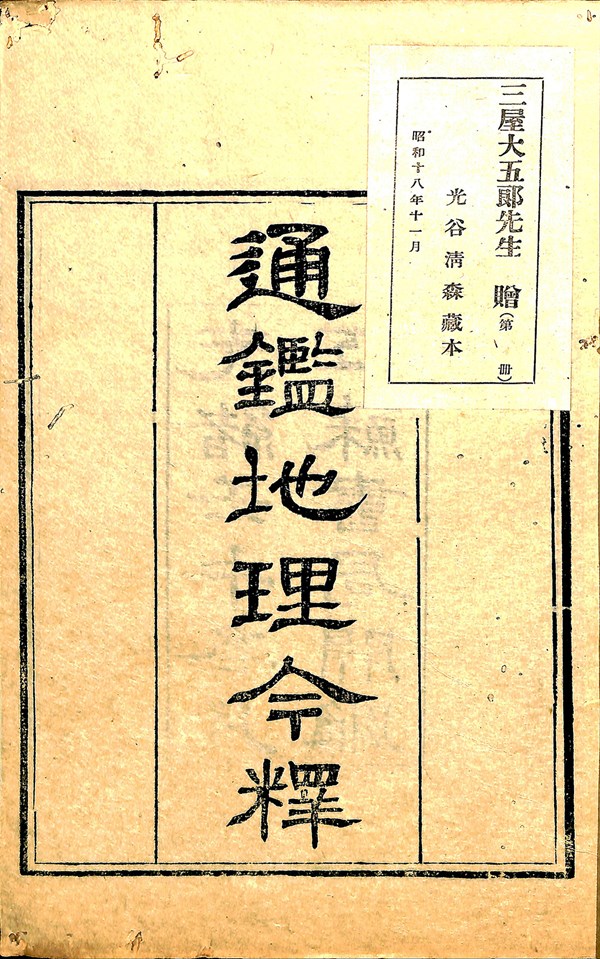 三屋大五郎先生 贈(第 冊)
光谷清森藏本
昭和十八年十一月
通鑑地理今釋